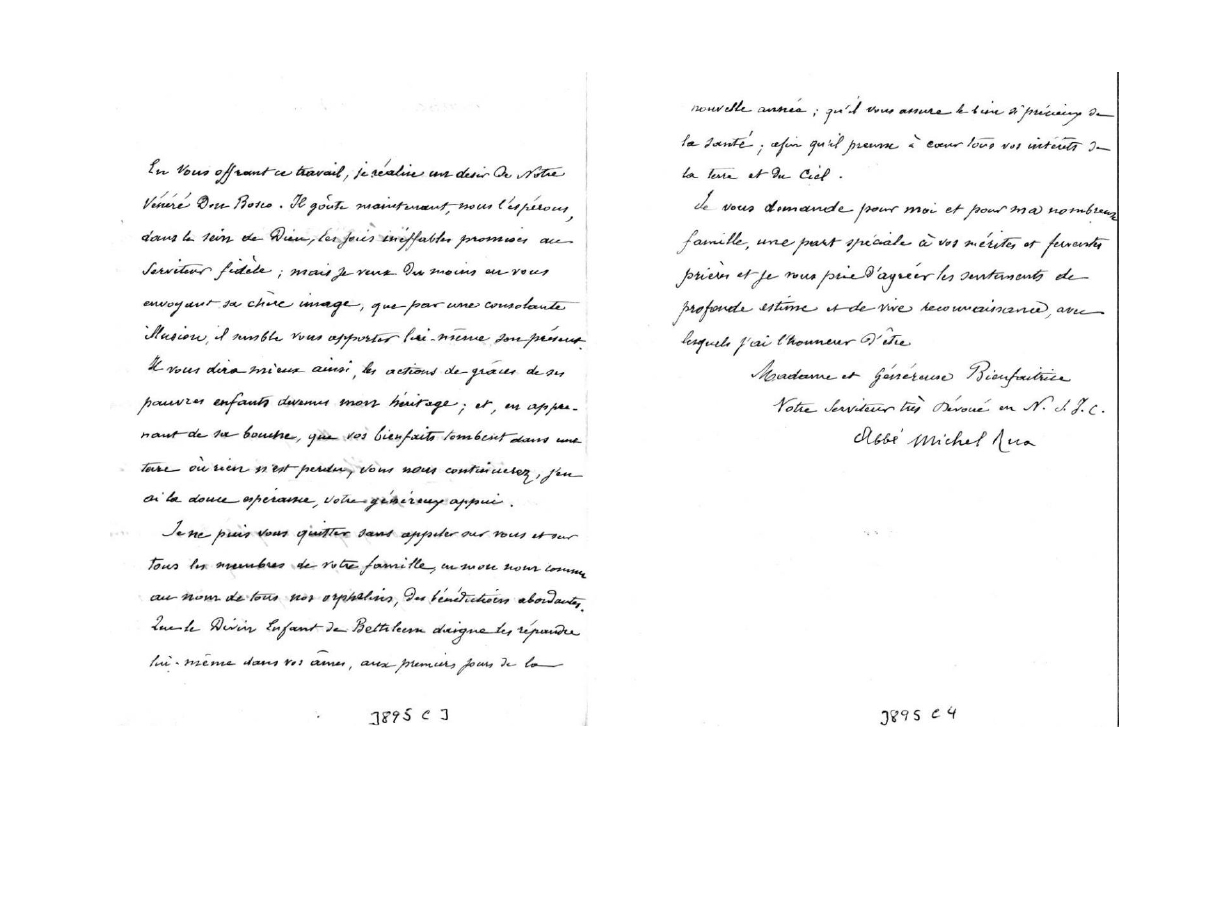 En vous offrant ce travail, je réalise un désir de Notre
Vénéré Don Bosco. Il goûte maintenant, nous l'espérons,
dans le sein de Dieu, les joies ineffables promises au
Serviteur fidèle ; mais je veux du moins en vous
envoyant sa chère image, que par une consolante
illusion, il semble vous apporter lui-même son présent.
Il vous dira mieux ainsi, les actions de grâces de ses
pauvres enfants devenus mon héritage ; et, en appre-
nant de sa bouche, que vos bienfaits tombent dans une
terre où rien n'est perdu, vous nous continuerez, j'en
ai la douce espérance, votre généreux appui.
Je ne puis vous quitter sans appeler sur vous et sur
tous les membres de votre famille, en mon nom comme
au nom de tous nos orphelins, des bénédictions abondantes.
Que le Divin Enfant de Bethléem daigne les répandre
lui-même dans vos âmes, aux premiers jours de la
3895 C 3
nouvelle année ; qu'il vous assure le bien si précieux de
la santé ; afin qu'il prenne à cœur tous vos intérêts de
la terre et du Ciel.
Je vous demande pour moi et pour ma nombreuse
famille, une part spéciale à vos mérites et ferventes
prières et je vous prie d'agréer les sentiments de
profonde estime et de vive reconnaissance, avec
lesquels j'ai l'honneur d'être
Madame et Généreuse Bienfaitrice
Votre Serviteur très Dévoué en N. S. J. C.
Abbé Michel Rua
3895 C 4